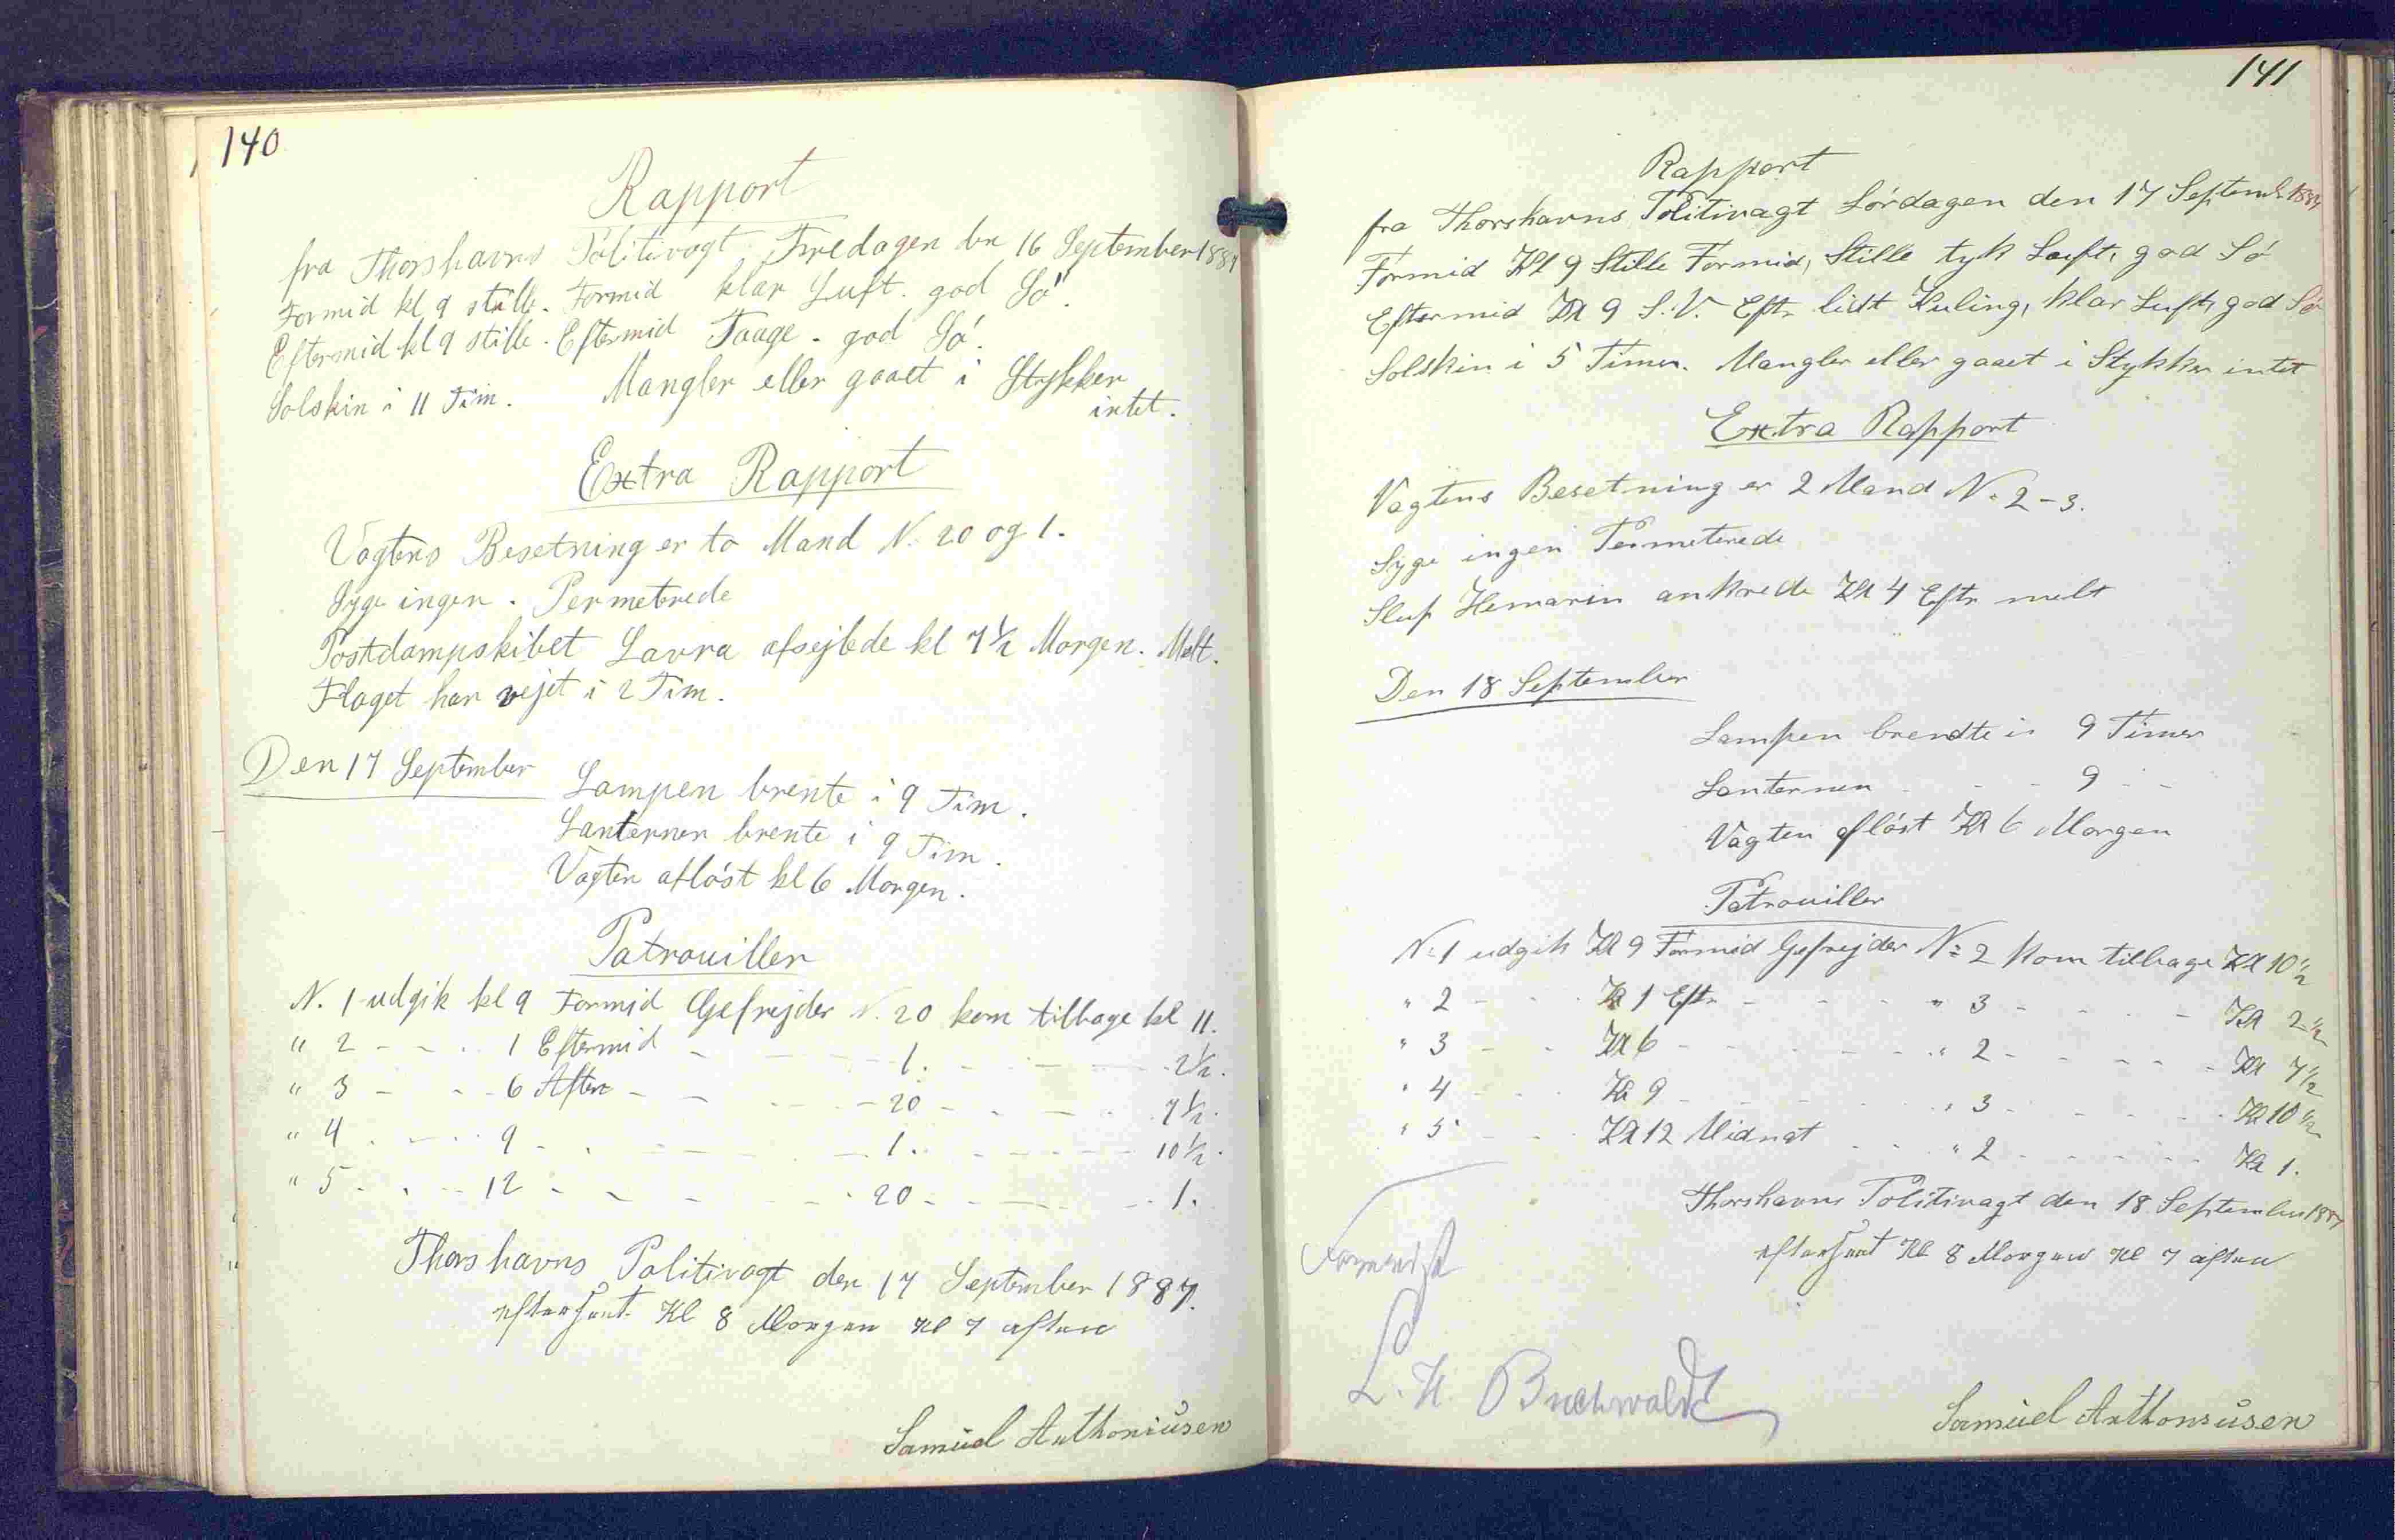 140
Rapport
fra Thorshavns Politivagt Fredagen den 16 September 1887
Formid kl 9 stille. Formid klar Luft. god Sø.
Eftermid kl 9 stille. Eftermid Taage. god Sø.
Solskin i 11 Tim. Mangler eller gaaet i Stykker
intet.
Extra Rapport
Vagtens Besetning er to Mand N. 20 og 1.
Syge ingen. Permeterede
Postdampskibet Laura afsejlede kl 7 1/2 Morgen. Melt.
Flaget har vejet i 2 Tim.
Den 17 September
Lampen brente i 9 Tim.
Lanternen brente i 9 Tim.
Vagten afløst kl 6 Morgen.
Patrouiller
N. 1 udgik kl 9 Formid Gefrejder N. 20 kom tilbage kl 11.
" 2 - - - 1 Eftermid - - - 1. - - - 2 1/2.
" 3 - - - 6 Aften - - - 20 - - - 7 1/2.
" 4 - - - 9 - - - 1. - - - 10 1/2.
" 5 - - - 12 - - - 20 - - - 1.
Thorshavns Politivagt den 17 September 1887.
efterseet Kl 8 Morgen Kl 7 aften
Samuel Anthoniusen
141
Rapport
fra Thorshavns Politivagt Lørdagen den 17 Septemb 1887
Formid Kl 9 Stille Formid, Stille tyk Luft, god Sø
Eftermid Kl 9 S.V. Eftr lidt Kuling, klar Luft, god Sø
Solskin i 5 Timer. Mangler eller gaaet i Stykker intet
Extra Rapport
Vagtens Besetning er 2 Mand N. 2-3.
Syge ingen Permeterede
Slup ankrede Kl 4 Eftr melt
Den 18 September
Lampen brendte i 9 Timer
Lanternen - - - 9 - -
Vagten afløst Kl 6 Morgen
Patrouiller
N. 1 udgik Kl 9 Formid Gefrejder N. 2 kom tilbage Kl 10 1/2
" 2 - - - Kl 1 Eftr - - - " 3 - - - Kl 2 1/2
" 3 - - - Kl 6 - - - " 2 - - - Kl 7 1/2
" 4 - - - Kl 9 - - - " 3 - - - Kl 10 1/2
" 5 - - - Kl 12 Midnat - - - " 2 - - - Kl 1.
Thorshavns Politivagt den 18 September 1887
efterseet Kl 8 Morgen Kl 7 aften
Buchwaldt
Samuel Anthoniusen